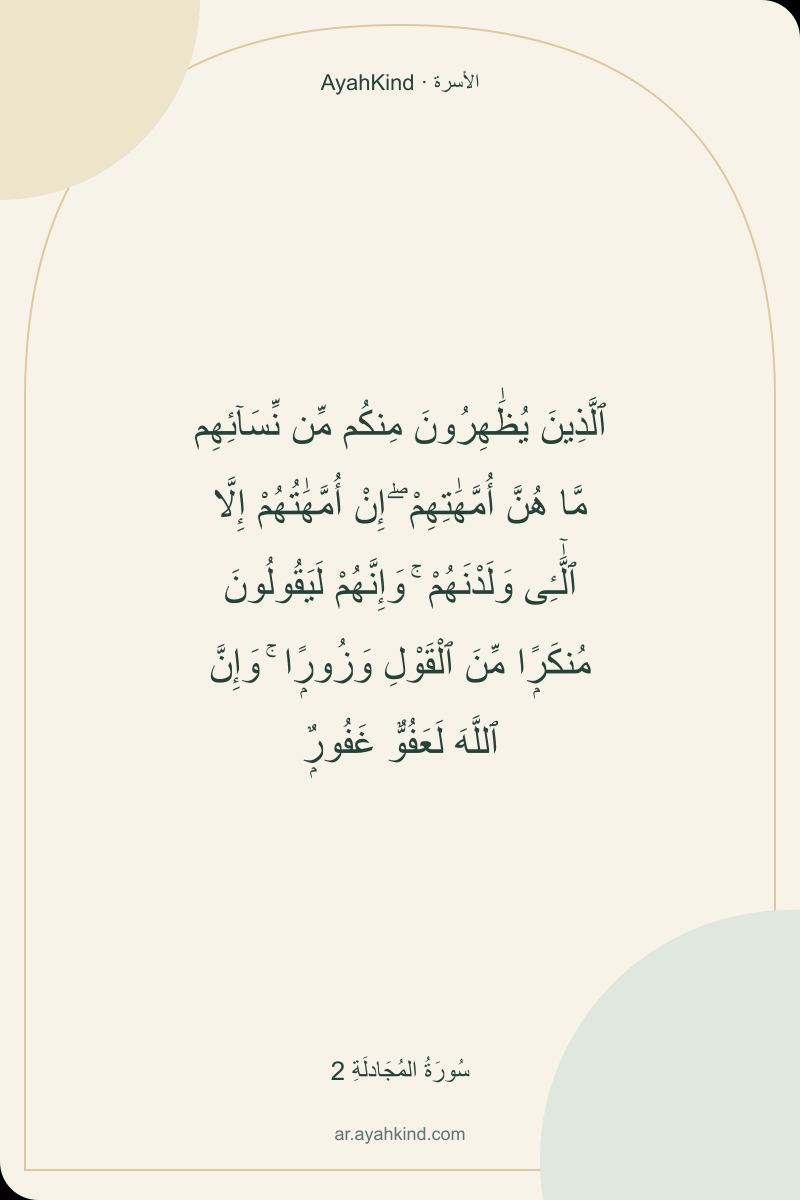 AyahKind · الأسرة
ٱلَّذِينَ يُظَٰهِرُونَ مِنكُم مِّن نِّسَآئِهِم
مَّا هُنَّ أُمَّهَٰتِهِمْ ۖ إِنْ أُمَّهَٰتُهُمْ إِلَّا
ٱلَّٰٓـِٔى وَلَدْنَهُمْ ۚ وَإِنَّهُمْ لَيَقُولُونَ
مُنكَرًۭا مِّنَ ٱلْقَوْلِ وَزُورًۭا ۚ وَإِنَّ
ٱللَّهَ لَعَفُوٌّ غَفُورٌۭ
سُورَةُ المُجَادلَةِ 2
ar.ayahkind.com